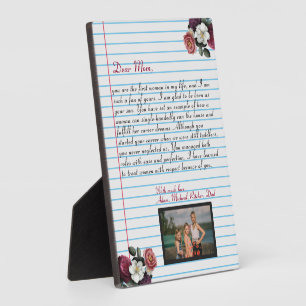 Dear Mom,
you are the first woman in my life, and I am
such a fan of yours. I am glad to be born as
your son. You have set an example of how a
woman can single-handedly run the house and
fulfill her career dreams. Although you
started your career when we were still toddlers,
you never neglected us. You managed both
roles with ease and perfection. I have learned
to treat women with respect because of you.
With much love,
Adam, Michael, Kitchie, Dad